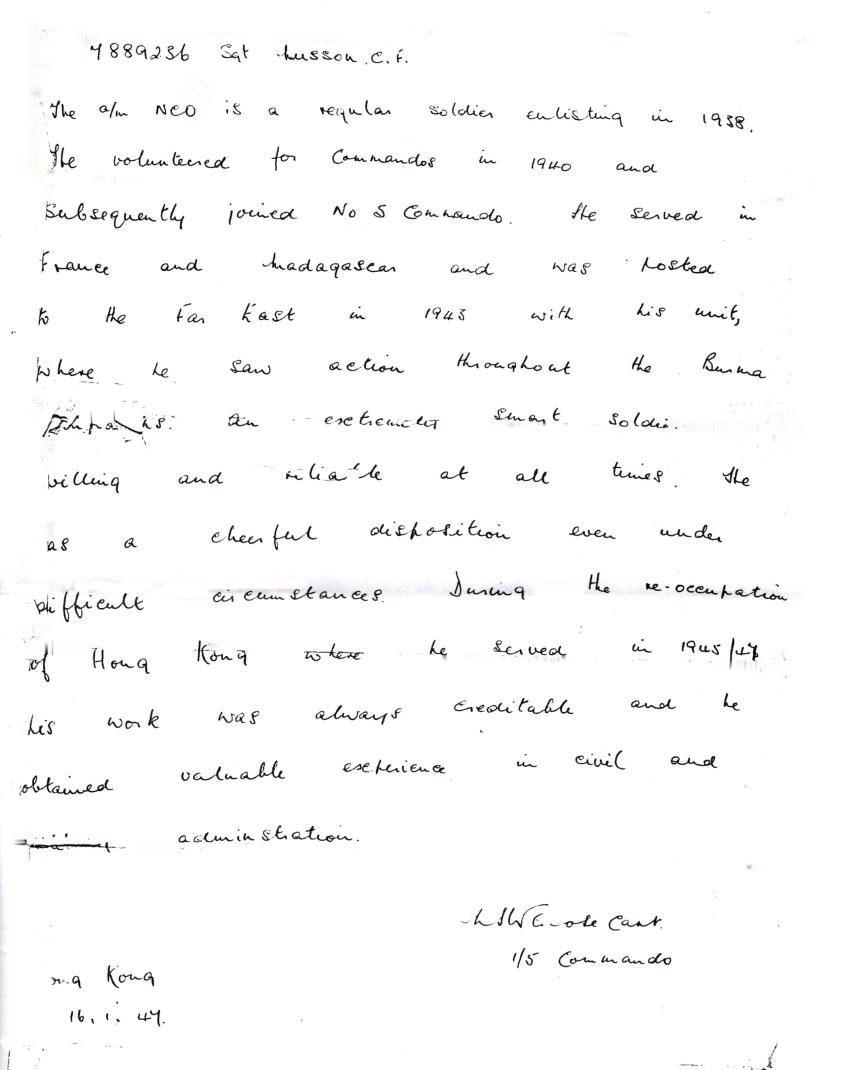 7889236 Sgt Musson. C. F.
The a/m NCO is a regular soldier enlisting in 1938.
He volunteered for Commandos in 1940 and
Subsequently joined No 5 Commando. He served in
France and Madagascar and was posted
to the Far East in 1943 with his unit,
where he saw action throughout the Burma
An extremely smart soldier.
willing and reliable at all times. He
as a cheerful disposition even under
difficult circumstances. During the re-occupation
of Hong Kong where he served in 1945/47
his work was always creditable and he
obtained valuable experience in civil and
adminstration.
Capt.
1/5 Commando
Kong
16. 1. 47.